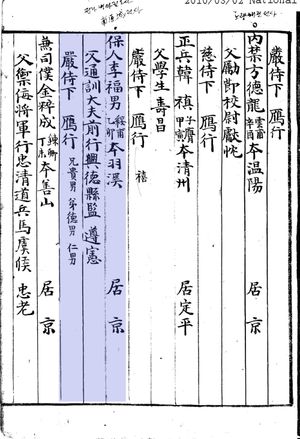 2010/03/02 National
嚴侍下 鴈行
內禁方德龍 雲甫 辛酉 本溫陽 居京
父勵節校尉獻忱
慈侍下 鴈行
正兵韓禛 甲寅 本清州 居定平
父學生 壽昌
嚴侍下 鴈行 禧
保人李福男 綏甫 乙卯 本羽溪 居京
父通訓大夫前行興德縣監 遵憲
嚴侍下 鴈行 兄貴男 弟德男 仁男
兼司僕金粹成 鍊卿 本善山 居京
父禦侮將軍行忠清道兵馬虞候 忠老